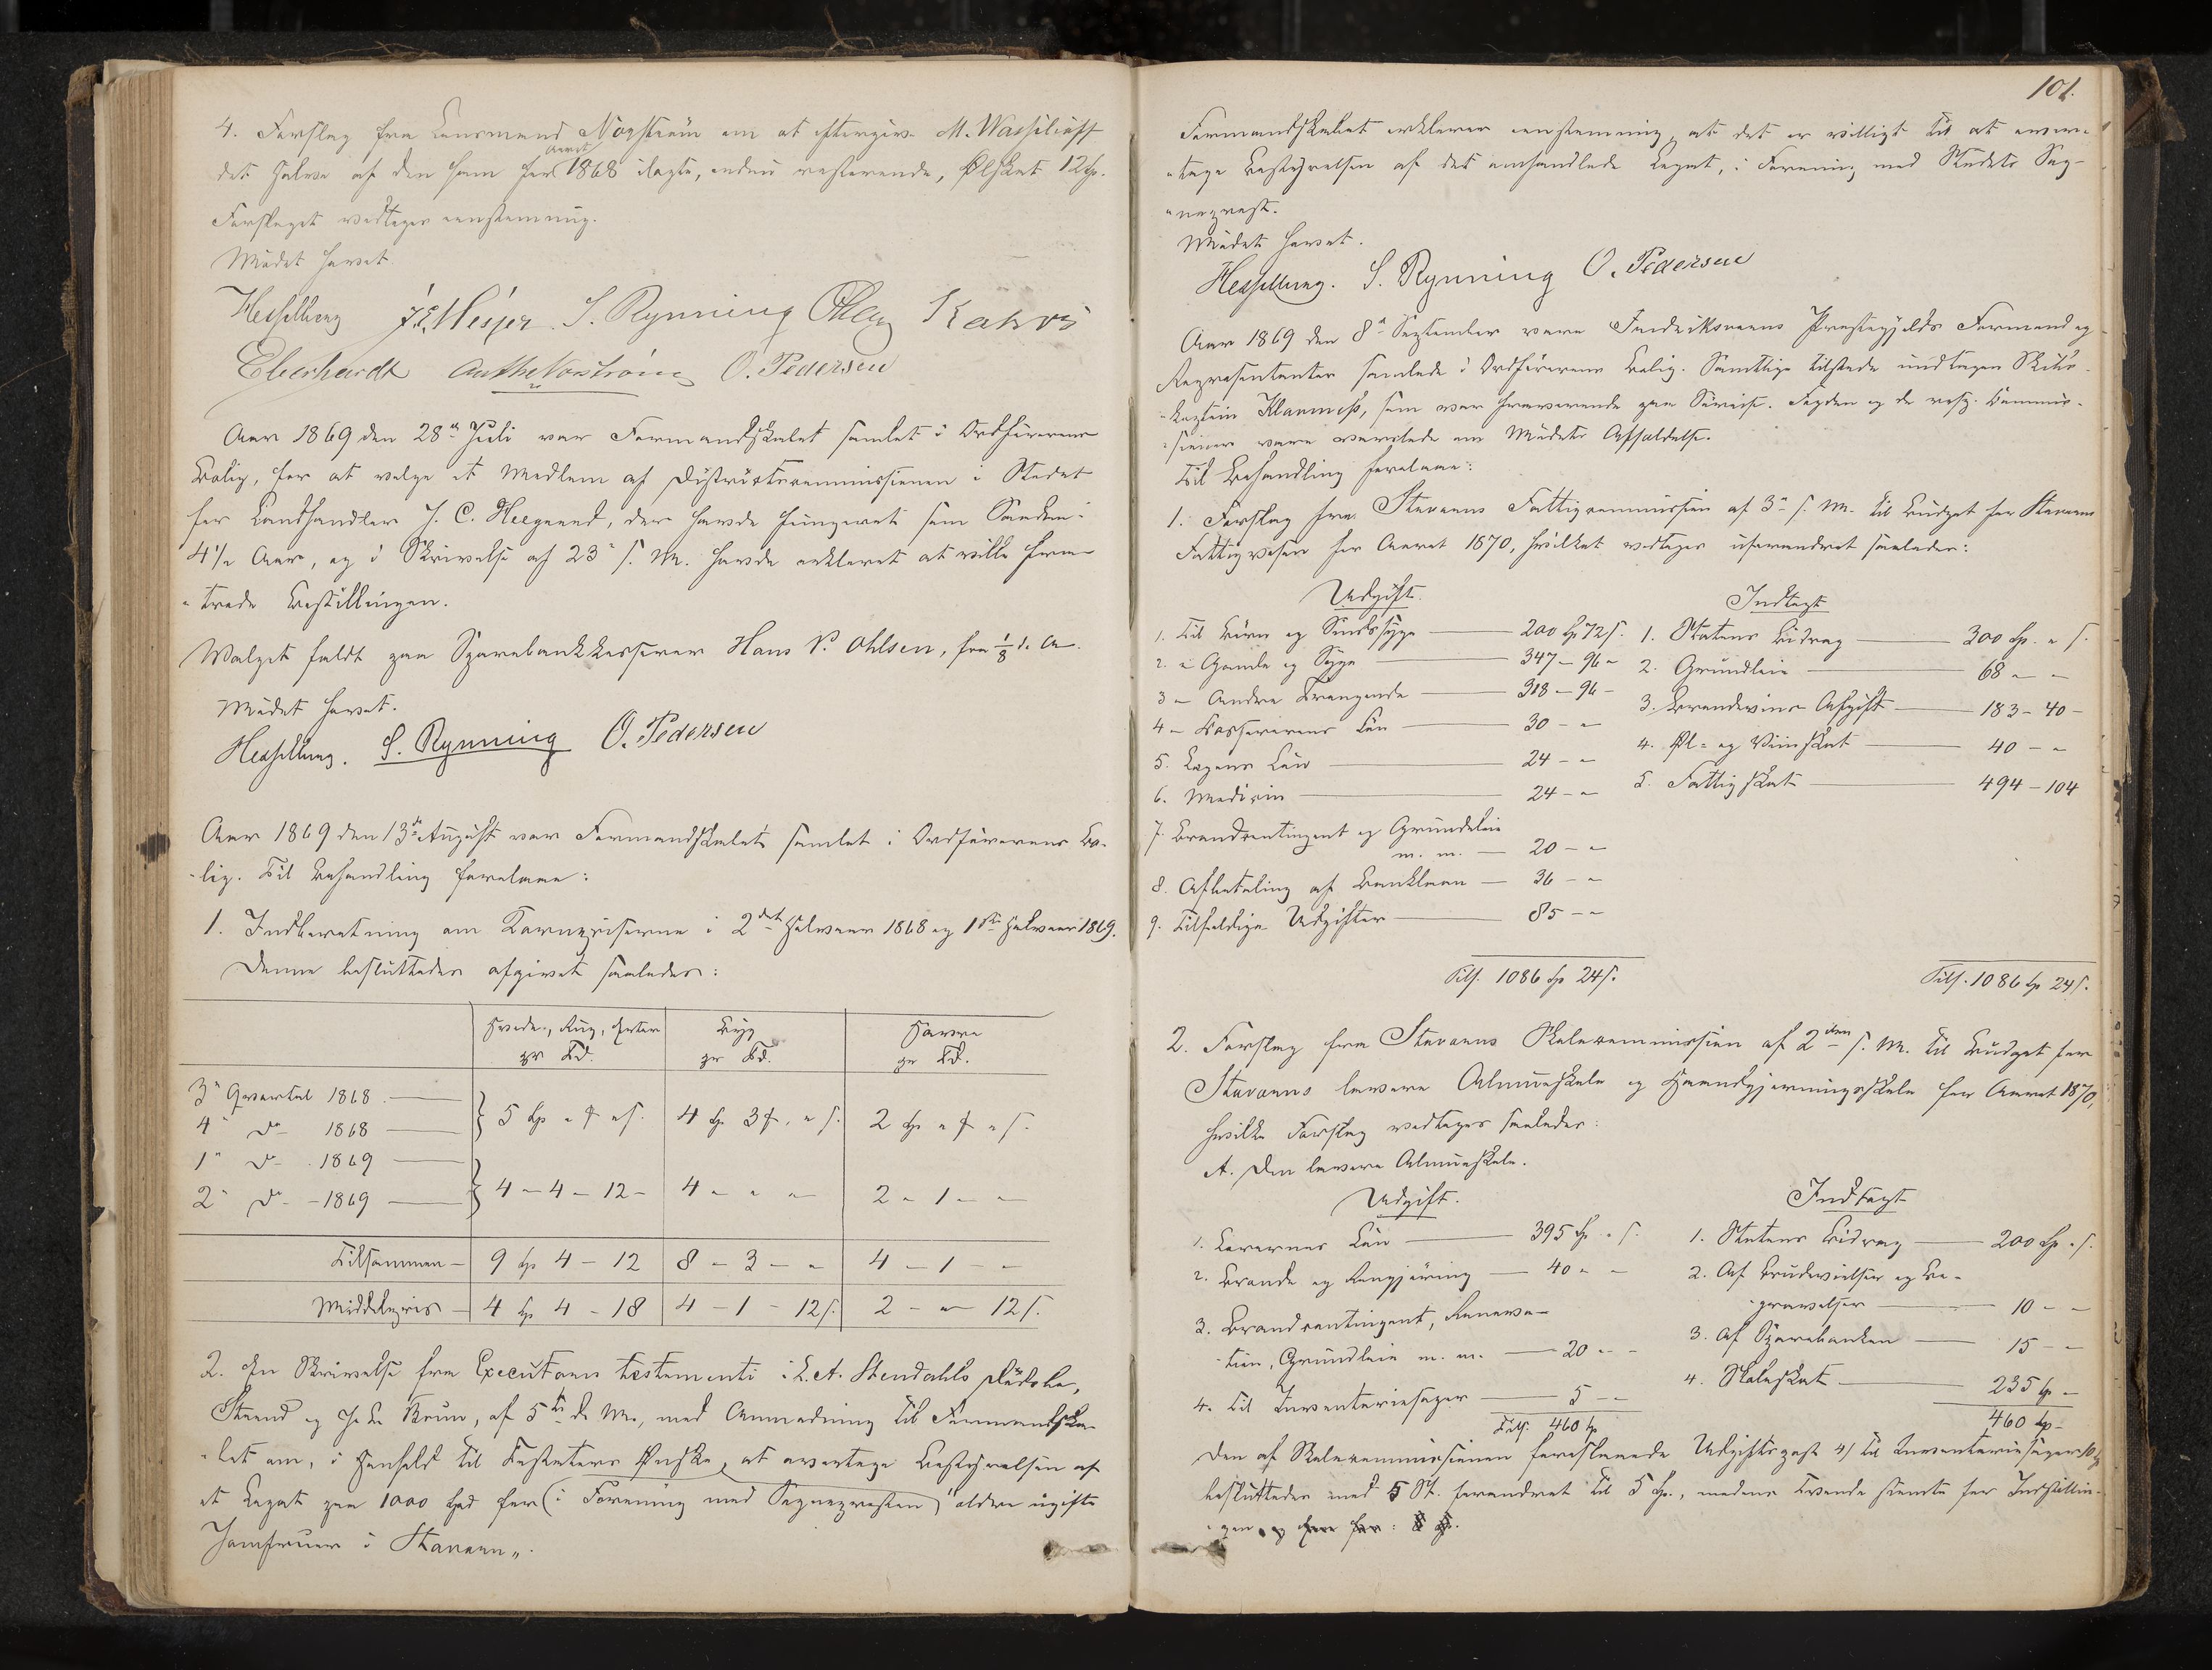 4. Forslag fra Lensmand Norstrøm om at eftergive M. Wassilioff
det Halve af den ham for Aaret 1868 ilagte, endnu resterende, Ølskat 12 Sp.
Forslaget vedtoges eenstemmig.
Mødet hævet.
Hesselberg S. Rynning
Eberhardt Anth Norstrøm O. Pedersen
Aar 1869 den 28de Juli var Formandskabet samlet i Ordførerens
Bolig, for at vælge et Medlem af Districtscommissionen i Stedet
for Landhandler J. C. Heegaard, der havde fungeret som saadan i
4 1/2 Aar, og i Skrivelse af 23de s. M. havde erklæret at ville fra-
træde Bestillingen.
Valget faldt paa Sparebankkasserer Hans P. Ohlsen, fra 1/8 d. A.
Mødet hævet.
Hesselberg. S. Rynning O. Pedersen
Aar 1869 den 13de August var Formandskabet samlet i Ordførerens Bo-
lig. Til Behandling forelaae:
1. Indberetning om Kornpriserne i 2det Halvaar 1868 og 1ste Halvaar 1869.
Denne besluttedes afgivet saaledes:
Hvede, Rug, Erter pr Td. Byg pr Td. Havre pr Td.
3de Qvartal 1868
4de do 1868
5 Sp " " s. 4 Sp. 3 " s. 2 Sp " " s.
1ste do 1869
2det do 1869
4 - 4 - 12 - 4 - " " 2 - 1 - "
Tilsammen 9 Sp 4 - 12 8 - 3 - " 4 - 1 - "
Middelpris 4 Sp 4 - 18 4 - 1 - 12 s. 2 - " 12 s.
2. En Skrivelse fra Executores testamenti i L. A. Stendahls Dødsbo,
Strand og J. L. Bruun, af 5te d. M., med Anmodning til Formandska-
bet om, i Henhold til Testators Ønske, at overtage Bestyrelsen af
et Legat paa 1000 Spd for (i Forening med Sognepresten) "ældre ugifte
Jomfruer i Stavern".
101.
Formandskabet erklærer eenstemmig, at det er villigt til at over-
tage Bestyrelsen af det omhandlede Legat, i Forening med Stedets Sog-
neprest.
Mødet hævet.
Hesselberg. S. Rynning O. Pedersen
Aar 1869 den 8de September vare Fredriksværns Præstegjelds Formænd og
Repræsentanter samlede i Ordførerens Bolig. Samtlige tilstede undtagen Skibs-
kaptein Klarness, som var fraværende paa Søreise. Fogden og de resp. Commis-
sioner vare varslede om Mødets Afholdelse.
Til Behandling forelaae:
1. Forslag fra Staverns Fattigcommission af 3de s. M. til Budget for Staverns
Fattigvæsen for Aaret 1870, hvilket vedtoges uforandret saaledes:
Udgift. Indtægt
1. Til Børn og Sindssyge 200 Sp 72 s. 1. Statens Bidrag 300 Sp. " s.
2. " Gamle og Syge 347 - 96 - 2. Grundleie 68 - "
3 - Andre Trængende 318 - 96 - 3. Brændeviins Afgift 183 - 40 -
4 - Kassererens Løn 30 - " 4. Øl- og Viinskat 40 - "
5. Lægens Løn 24 - " 5. Fattigskat 494 - 104
6. Medicin 24 - "
7. Brandcontingent og Grundleie
m. m. 20 - "
8. Afbetaling af Banklaan 36 - "
9. Tilfældige Udgifter 85 - "
Tils. 1086 Sp 24 s. Tils. 1086 Sp 24 s.
2. Forslag fra Staverns Skolecommission af 2den s. M. til Budget for
Staverns lavere Almueskole og Haandgjerningsskole for Aaret 1870,
hvilke Forslag vedtoges saaledes:
A. Den lavere Almueskole.
Udgift. Indtægt
1. Lærernes Løn 395 Sp. " s. 1. Statens Bidrag 200 Sp. " s.
2. Brænde og Rengjøring 40 - " 2. Af Brudevielser og Be-
gravelser 10 - "
3. Brandcontingent, Renova-
tion, Grundleie m. m. 20 - " 3. Af Sparebanken 15 - "
4. Til Inventariesager 5 - " 4. Skoleskat 235 Sp -
Tils. 460 Sp 460 Sp -
Den af Skolecommissionen foreslaaede Udgiftspost 4) til Inventariesager 10 Sp
besluttedes med 5 St. forandret til 5 Sp., medens tvende stemte for Indstillin-
gen